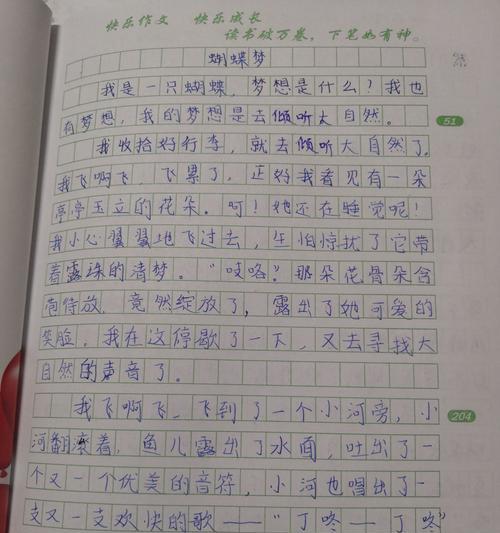 快乐作文 快乐成长
读书破万卷，下笔如有神。
蝴蝶梦
我是一只蝴蝶，梦想是什么？我也
有梦想，我的梦想是去倾听大自然。
51
我收拾好行李，就去倾听大自然了。
我飞啊飞，飞累了，正好我看见有一朵
亭亭玉立的花朵。呵！她还在睡觉呢！
我小心翼翼地飞过去，生怕惊扰了它带
着露珠的清梦。“吱咯？那朵花骨朵含
苞待放，竟然绽放了，露出了她可爱的
笑脸，我在这停歇了一下，又去寻找大
自然的声音了。
我飞啊飞，飞到了一个小河旁，小
204
河翻滚着，鱼儿露出了水面，吐出了一
个又一个优美的音符，小河也唱出了一
支又一支欢快的歌——“丁咚—丁咚